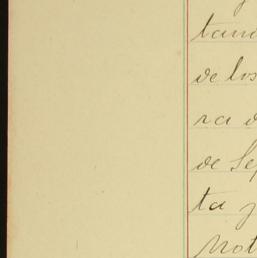 tan
de los
ra d
de Se
ta
Not